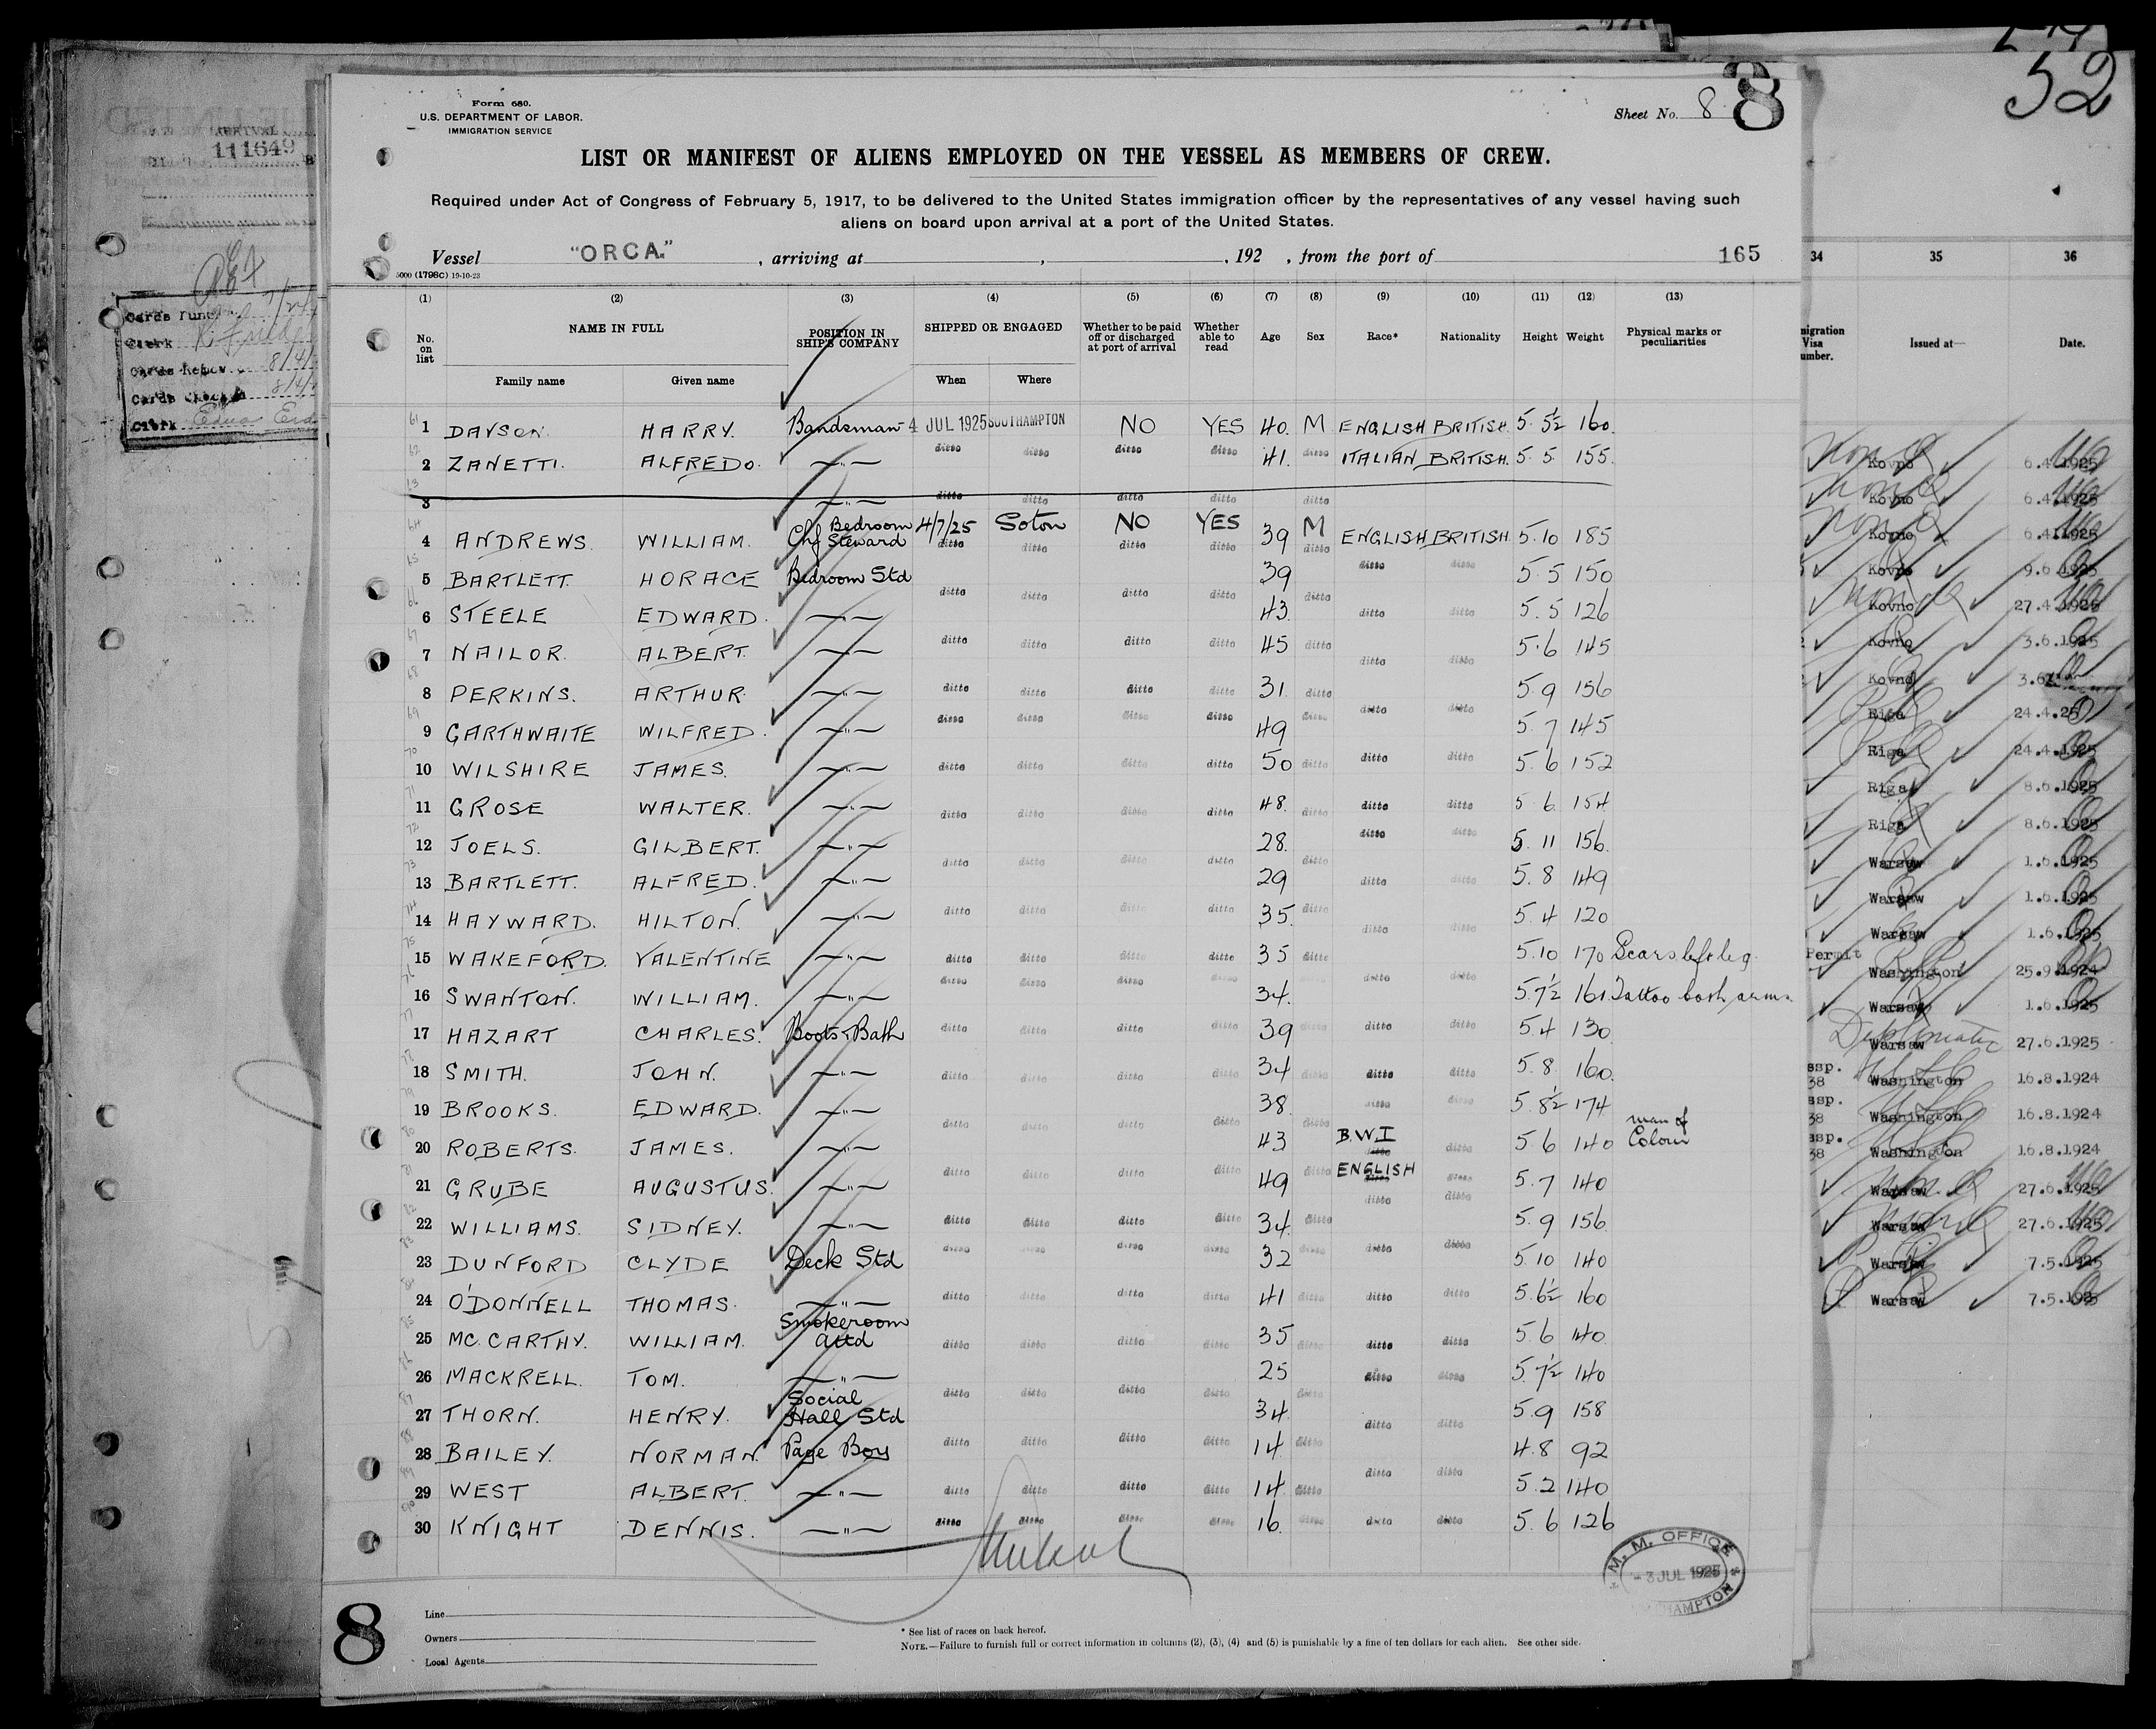 8
Form 680.
U.S. DEPARTMENT OF LABOR.
IMMIGRATION SERVICE
Sheet No. 8
LIST OR MANIFEST OF ALIENS EMPLOYED ON THE VESSEL AS MEMBERS OF CREW.
Required under Act of Congress of February 5, 1917, to be delivered to the United States immigration officer by the representatives of any vessel having such
aliens on board upon arrival at a port of the United States.
Vessel "ORCA." , arriving at , , 192 , from the port of 165
5000 (1798C) 19-10-23
(1) (2) (3) (4) (5) (6) (7) (8) (9) (10) (11) (12) (13)
No. on list NAME IN FULL POSITION IN SHIP'S COMPANY SHIPPED OR ENGAGED Whether to be paid off or discharged at port of arrival Whether able to read Age Sex Race* Nationality Height Weight Physical marks or peculiarities
Family name Given name When Where
1 DAVSON HARRY. Bandsman 4 JUL 1925 SOUTHAMPTON NO YES 40. M ENGLISH BRITISH. 5.5½ 160.
2 ZANETTI. ALFREDO. —"— ditto ditto ditto ditto 41. ditto ITALIAN BRITISH. 5.5. 155.
3 —"— ditto ditto ditto ditto ditto
4 ANDREWS. WILLIAM. Chf Bedroom Steward 4/7/25 Soton NO YES 39 M ENGLISH BRITISH. 5.10 185
5 BARTLETT. HORACE Bedroom Std ditto ditto ditto ditto 39 ditto ditto ditto 5.5 150
6 STEELE EDWARD. —"— ditto ditto ditto ditto 43. ditto ditto ditto 5.5 126
7 NAILOR. ALBERT. —"— ditto ditto ditto ditto 45 ditto ditto ditto 5.6 145
8 PERKINS. ARTHUR. —"— ditto ditto ditto ditto 31. ditto ditto ditto 5.9 156
9 GARTHWAITE WILFRED. —"— ditto ditto ditto ditto 49 ditto 5.7 145
10 WILSHIRE JAMES. —"— ditto ditto ditto ditto 50 ditto ditto ditto 5.6 152
11 GROSE WALTER. —"— ditto ditto ditto ditto 48. ditto ditto ditto 5 6. 154
12 JOELS. GILBERT. —"— 28. ditto ditto 5. 11 156.
13 BARTLETT. ALFRED. —"— ditto ditto ditto ditto 29 ditto ditto ditto 5.8 149
14 HAYWARD. HILTON. —"— ditto ditto ditto ditto 35. ditto ditto ditto 5.4 120
15 WAKEFORD. VALENTINE —"— ditto ditto ditto ditto 35 ditto 5.10 170 Scars left leg.
16 SWANTON. WILLIAM. —"— ditto ditto ditto ditto 34. ditto ditto 5.7½ 161. Tattoo both arms
17 HAZART CHARLES. Boots & Bath ditto ditto ditto ditto 39 ditto ditto ditto 5.4 130.
18 SMITH. JOHN. —"— ditto ditto ditto ditto 34 ditto ditto ditto 5.8. 160.
19 BROOKS. EDWARD. —"— 38. ditto ditto 5.8½ 174
20 ROBERTS. JAMES. —"— ditto ditto ditto ditto 43 ditto B.W.I ditto 5.6 140 man of Colour
21 GRUBE AUGUSTUS. —"— ditto ditto ditto ditto 49 ditto ENGLISH ditto 5.7 140
22 WILLIAMS. SIDNEY. —"— ditto ditto ditto ditto 34. ditto ditto ditto 5.9 156.
23 DUNFORD CLYDE Deck Std ditto ditto ditto ditto 32 ditto ditto 5.10 140
24 O'DONNELL THOMAS. —"— ditto ditto ditto ditto 41 ditto ditto ditto 5.6½ 160
25 MC.CARTHY. WILLIAM. Smokeroom attd ditto ditto ditto ditto 35 ditto ditto ditto 5.6 140.
26 MACKRELL. TOM. —"— 25 ditto ditto 5.7½ 140
27 THORN. HENRY. Social Hall Std ditto ditto ditto ditto 34. ditto ditto ditto 5.9 158
28 BAILEY. NORMAN. Page Boy ditto ditto ditto ditto 14. ditto 4.8 92
29 WEST ALBERT. —"— ditto ditto ditto ditto 14. ditto ditto ditto 5.2 140
30 KNIGHT DENNIS. —"— ditto ditto ditto ditto 16. ditto ditto ditto 5.6 126
M. M. OFFICE
-3 JUL 1925
8
Line
Owners
Local Agents
* See list of races on back hereof.
NOTE.—Failure to furnish full or correct information in columns (2), (3), (4) and (5) is punishable by a fine of ten dollars for each alien. See other side.
111649
52
34 35 36
Issued at— Date.
Kovno 6.4.1925
Kovno 6.4.1925
Kovno 6.4.1925
Kovno 9.6.1925
Kovno 27.4.1925
Kovno 3.6.1925
Kovno
Riga 24.4.25
Riga 24.4.1925
Riga 8.6.1925
Riga 8.6.1925
Warsaw 1.6.1925
Warsaw 1.6.1925
Warsaw 1.6.1925
Permit Washington 25.9.1924
Warsaw 1.6.1925
Warsaw 27.6.1925
Washington 16.8.1924
Washington 16.8.1924
Washington 16.8.1924
Warsaw 27.6.1925
Warsaw 27.6.1925
Warsaw 7.5.1925
Warsaw 7.5.192